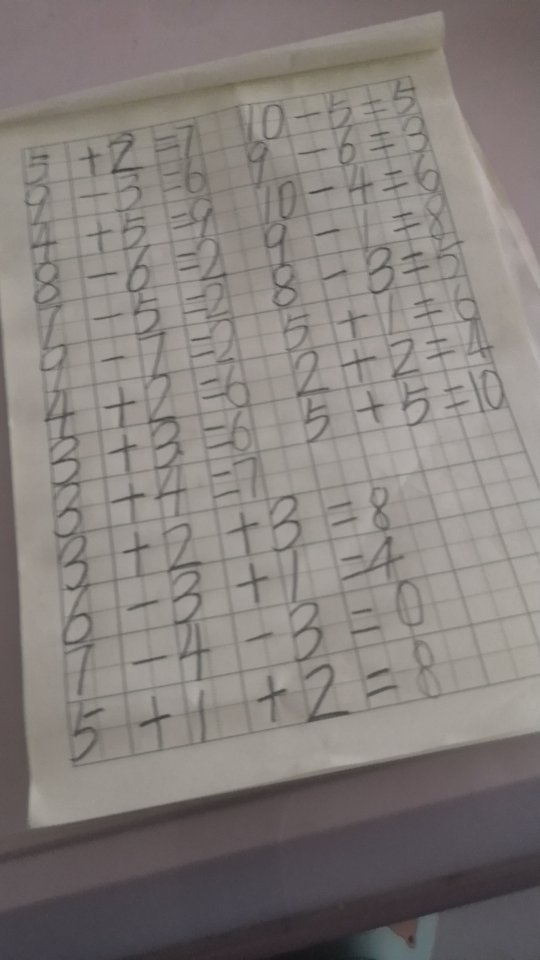 5 + 2 = 7
9 - 3 = 6
4 + 5 = 9
8 - 6 = 2
7 - 5 = 2
9 - 7 = 2
4 + 2 = 6
3 + 3 = 6
3 + 4 = 7
3 + 2 + 3 = 8
6 - 3 + 1 = 4
7 - 4 - 3 = 0
5 + 1 + 2 = 8
10 - 5 = 5
9 - 6 = 3
10 - 4 = 6
9 - 1 = 8
8 - 3 = 5
5 + 1 = 6
2 + 2 = 4
5 + 5 = 10